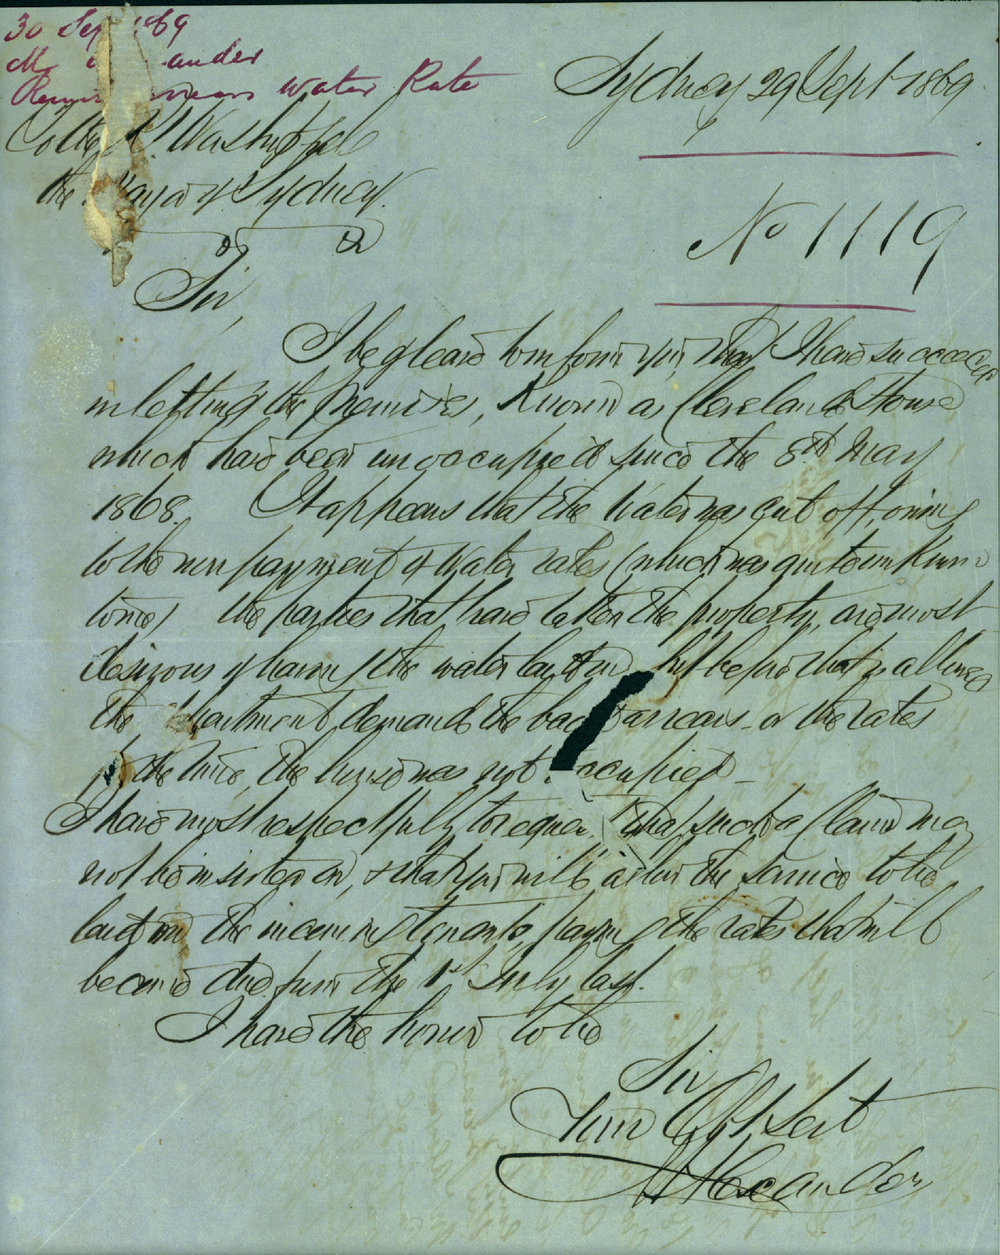 30 Sep 1869
M ander
arrears Water Rate
Sydney 29 Sept 1869
the Mayor of Sydney
No 1119
Sir,
I beg leave to inform you, that I have succeeded
in letting the premises, Known as Cleveland House
which have been unoccupied since the 8th May
1868. It appears that the Water was cut off, owing
to the non payment of Water rates (which was quite unknown
to me) the parties that have taken the property, are most
desirous of having the water laid on, but before that is allowed
the Department demands the back arrears or the rates
for the time, the house was not occupied —
I have most respectfully to request that such a Claim may
not be insisted on, & that you will allow the Service to be
laid on the incoming tenants, paying the rates that will
become due from the 1st July last.
I have the honor to be
Sir
Your Obt Sert
Alexander